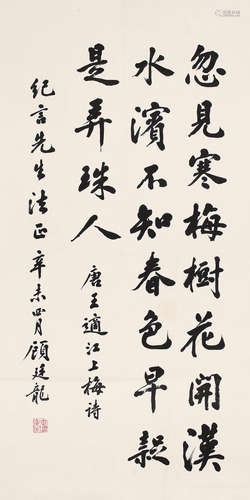 忽見寒梅樹花開漢
水濱不知春色早疑
是弄珠人 唐王適江上梅詩
紀言先生法正 辛未四月 顧廷龍